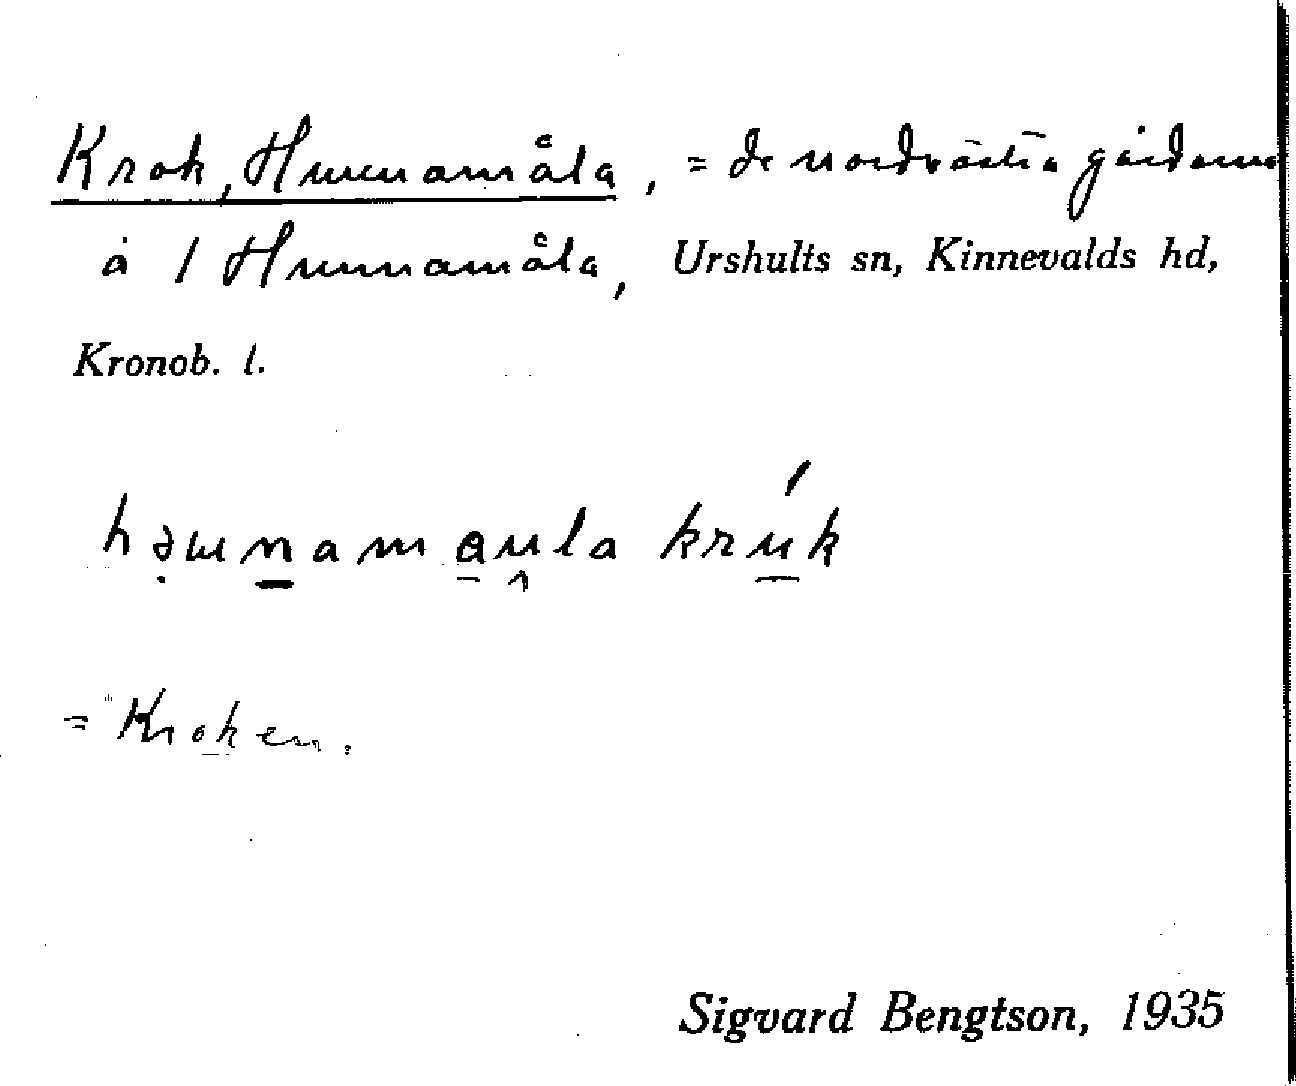 Krok, Hunnamåla, = de nordvästra gårdarna
å 1 Hunnamåla, Urshults sn, Kinnevalds hd,
Kronob. l.
krúk
= Kroken.
Sigvard Bengtson, 1935